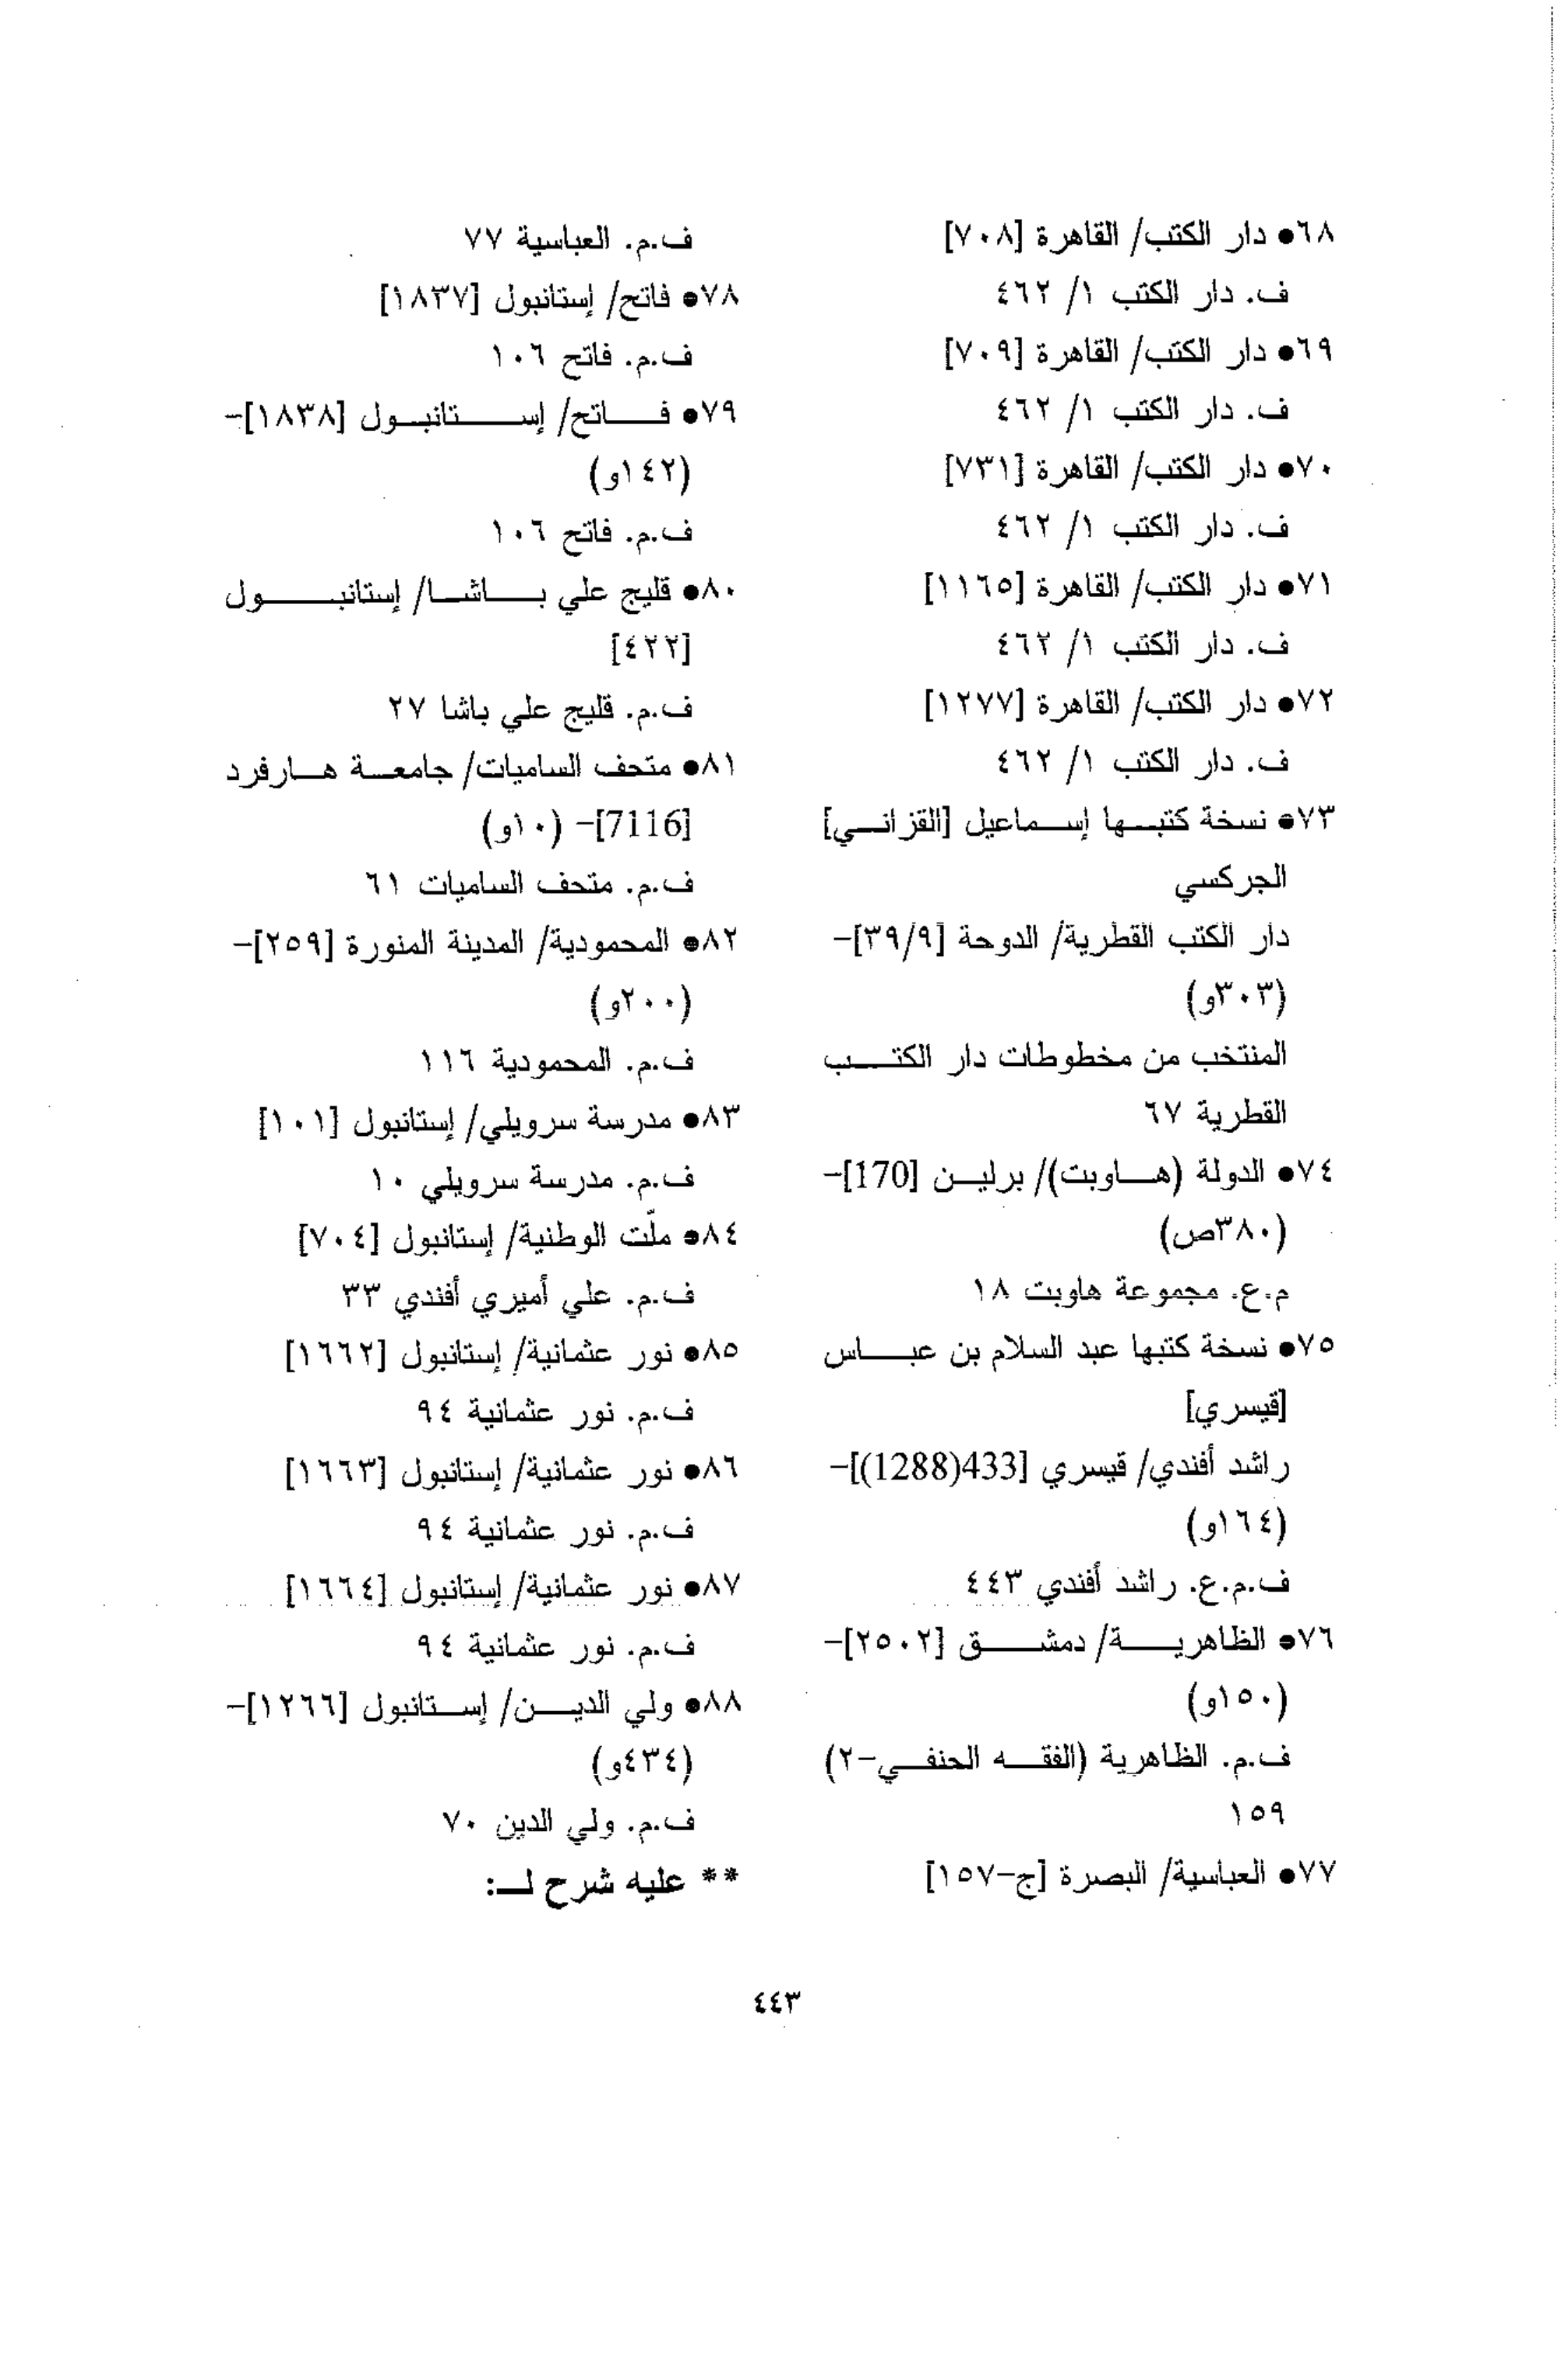 ٦٨● دار الكتب/ القاهرة [٧٠٨]
ف. دار الكتب ١/ ٤٦٢
٦٩● دار الكتب/ القاهرة [٧٠٩]
ف. دار الكتب ١/ ٤٦٢
٧٠● دار الكتب/ القاهرة [٧٣١]
ف. دار الكتب ١/ ٤٦٢
٧١● دار الكتب/ القاهرة [١١٦٥]
ف. دار الكتب ١/ ٤٦٢
٧٢● دار الكتب/ القاهرة [١٢٧٧]
ف. دار الكتب ١/ ٤٦٢
٧٣● نسخة كتبها إسماعيل [القزاني]
الجركسي
دار الكتب القطرية/ الدوحة [٣٩/٩]-
(٣٠٣و)
المنتخب من مخطوطات دار الكتب
القطرية ٦٧
٧٤● الدولة (هاوبت)/ برلين [170]-
(٣٨٠ص)
م.ع. مجموعة هاوبت ١٨
٧٥● نسخة كتبها عبد السلام بن عباس
[قيسري]
راشد أفندي/ قيسري [433(1288)]-
(١٦٤و)
ف.م.ع. راشد أفندي ٤٤٣
٧٦● الظاهرية/ دمشق [٢٥٠٢]-
(١٥٠و)
ف.م. الظاهرية (الفقه الحنفي-٢)
١٥٩
٧٧● العباسية/ البصرة [ج-١٥٧]
ف.م. العباسية ٧٧
٧٨● فاتح/ إستانبول [١٨٣٧]
ف.م. فاتح ١٠٦
٧٩● فاتح/ إستانبول [١٨٣٨]-
(١٤٢و)
ف.م. فاتح ١٠٦
٨٠● قليج علي باشا/ إستانبول
[٤٢٢]
ف.م. قليج علي باشا ٢٧
٨١● متحف الساميات/ جامعة هارفرد
[7116]- (١٠و)
ف.م. متحف الساميات ٦١
٨٢● المحمودية/ المدينة المنورة [٢٥٩]-
(٢٠٠و)
ف.م. المحمودية ١١٦
٨٣● مدرسة سرويلي/ إستانبول [١٠١]
ف.م. مدرسة سرويلي ١٠
٨٤● ملّت الوطنية/ إستانبول [٧٠٤]
ف.م. علي أميري أفندي ٣٣
٨٥● نور عثمانية/ إستانبول [١٦٦٢]
ف.م. نور عثمانية ٩٤
٨٦● نور عثمانية/ إستانبول [١٦٦٣]
ف.م. نور عثمانية ٩٤
٨٧● نور عثمانية/ إستانبول [١٦٦٤]
ف.م. نور عثمانية ٩٤
٨٨● ولي الدين/ إستانبول [١٢٦٦]-
(٤٣٤و)
ف.م. ولي الدين ٧٠
** عليه شرح لـ:
٤٤٣